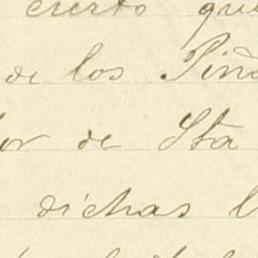 cierto que
de los Piño
or de Sta
dichas l